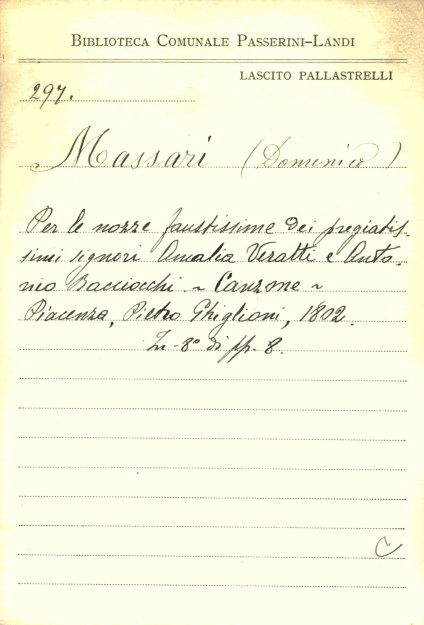 BIBLIOTECA COMUNALE PASSERINI-LANDI
LASCITO PALLASTRELLI
297.
Massari (Domenico)
Per le nozze faustissime dei pregiatis-
simi signori Amalia Veratti e Anto-
nio Bacciocchi ~ Canzone ~
Piacenza, Pietro Ghiglioni, 1802.
In-8° di pp. 8.